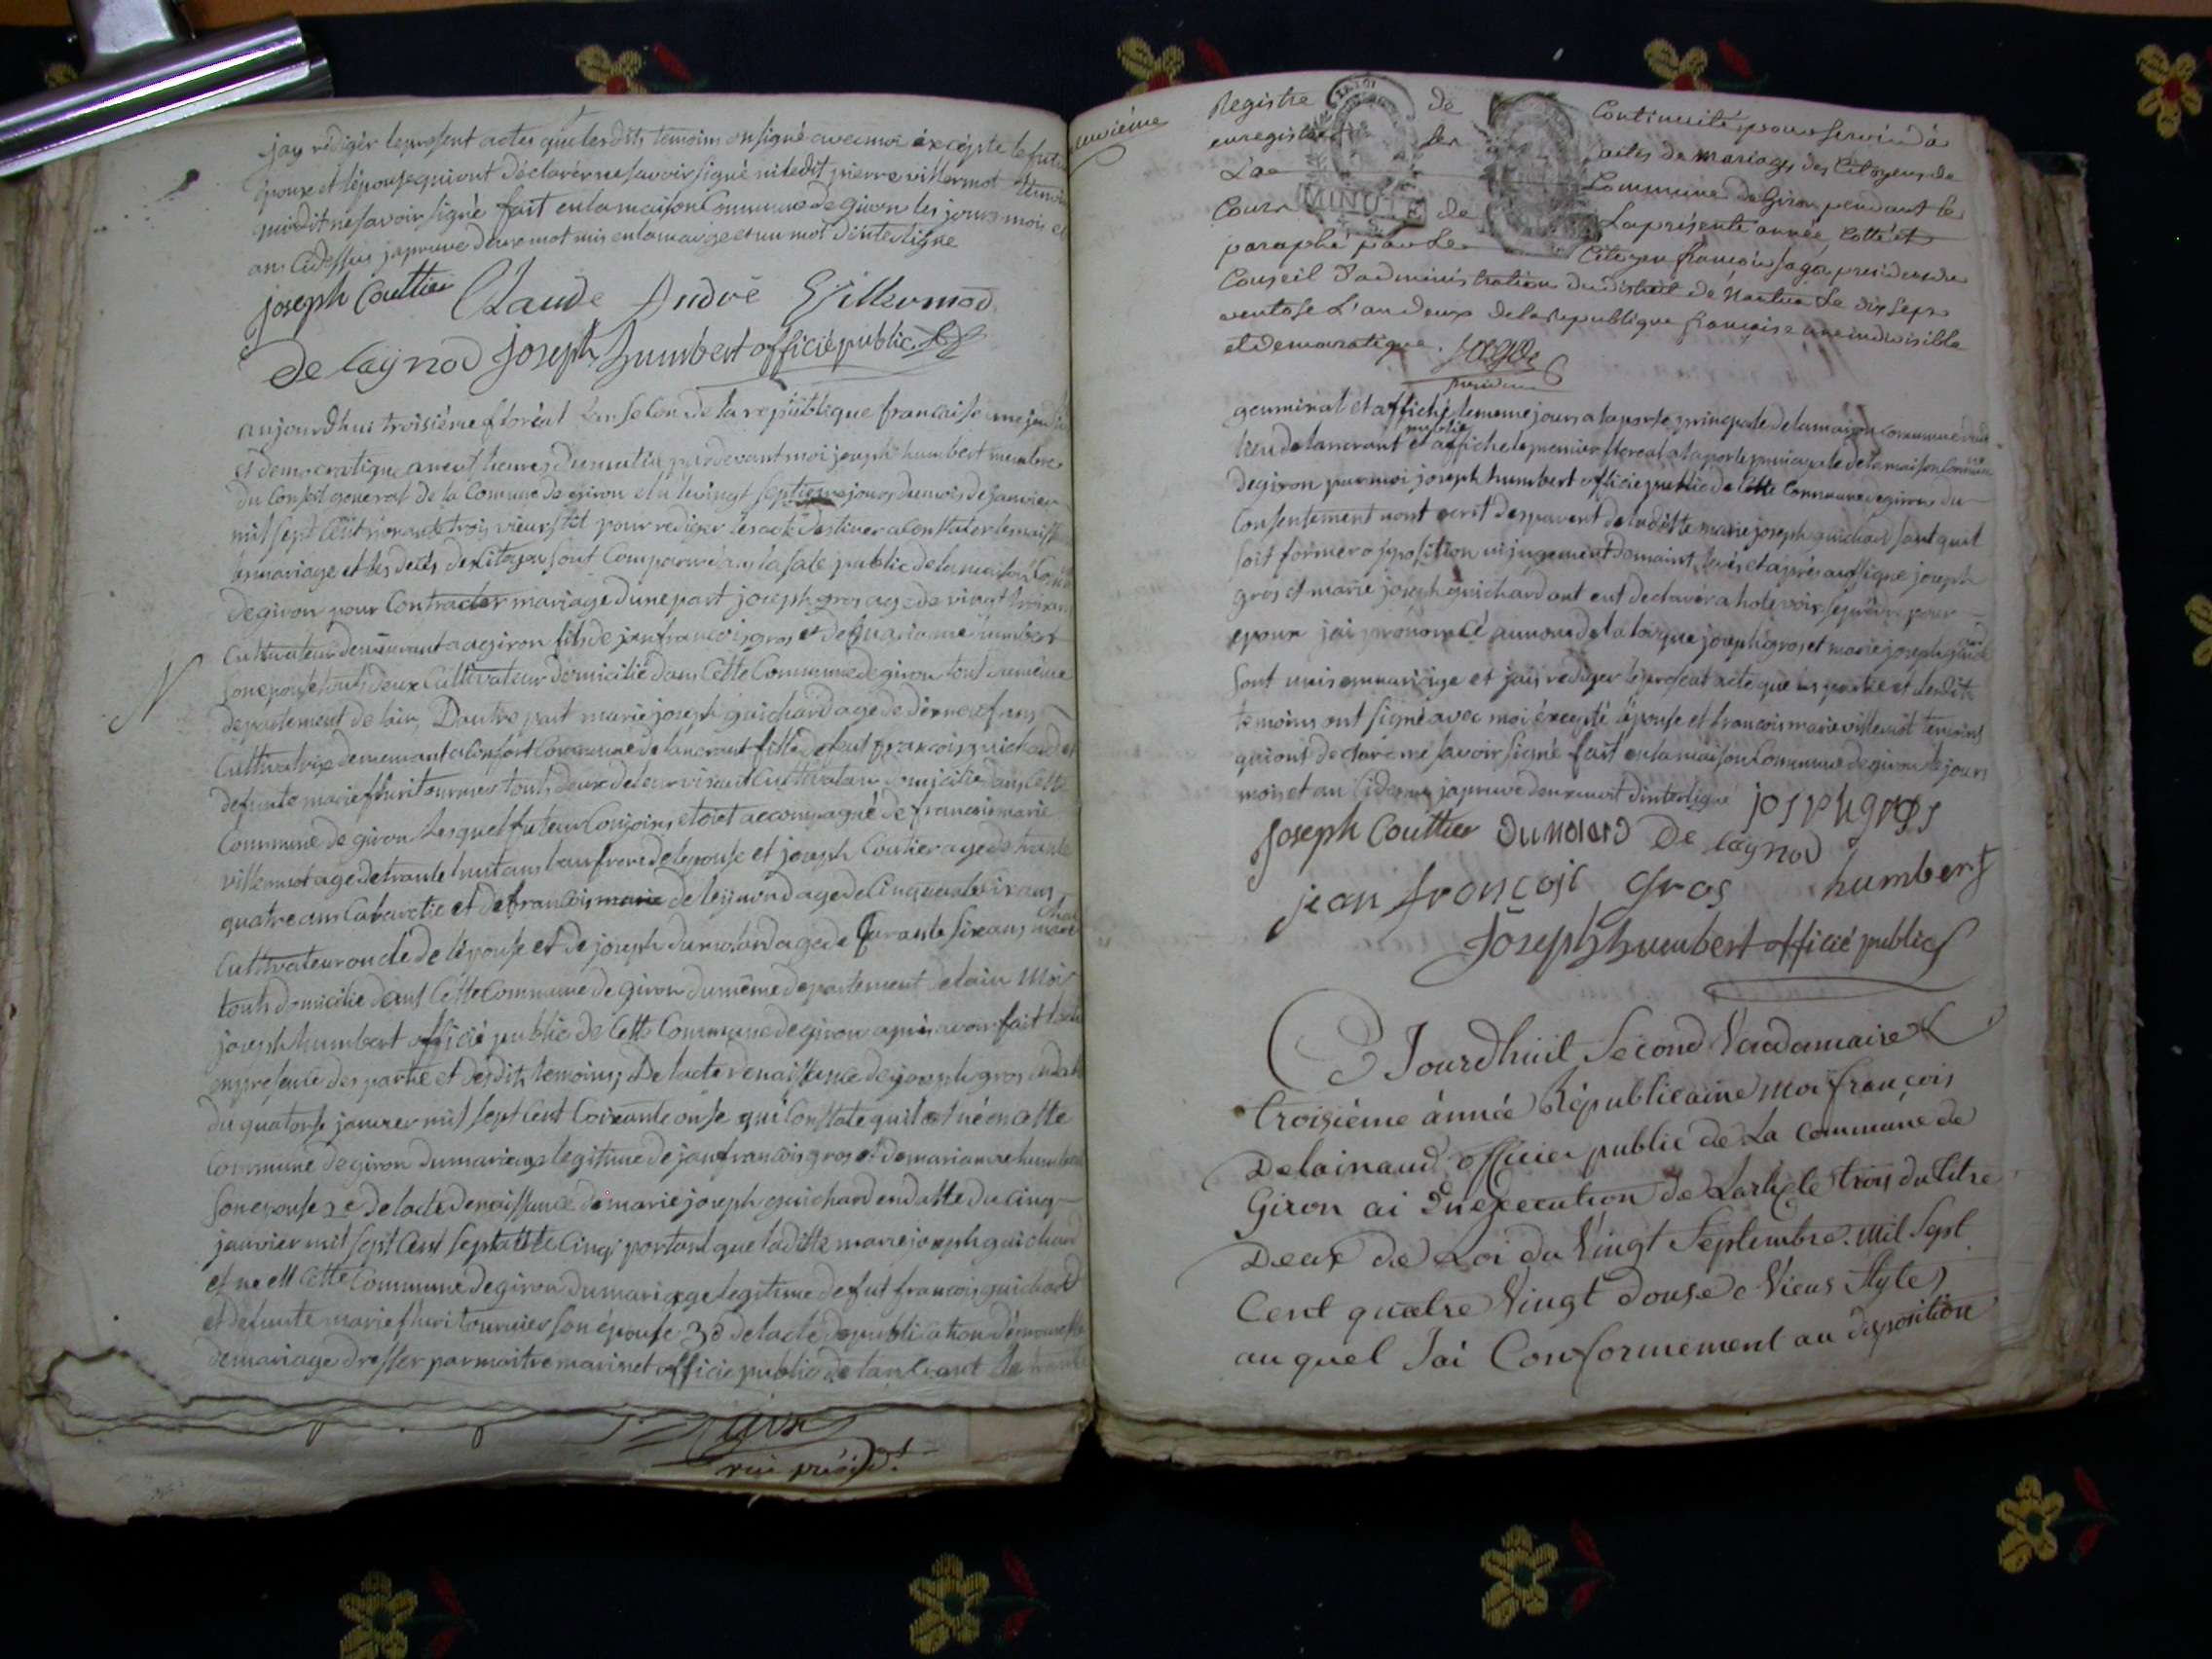 jay rédiger le present actes que lesdits temoins on signé avec moi éxcépte le futur
epoux et lépouse qui ont déclarér ne savoir signé ni ledit pierre villermot temoin
qui dit ne savoir signé fait en la maison Commune de giron les jours mois et
an cidessus japrouve deux mot mis en la marge et un mot dinterligne
joseph Couttier Claude André Villermod
De laynod joseph humbert officié public
aujourdhui troisiéme floréal lan selon de la republique francaise une indi
et democratique a neuf heures du matin par devant moi joseph humbert membre
du Conseil general de la Commune de giron elu le vingt septieme jours du mois de janvier
mil sept Cent nonante trois vieux stil pour rediger les acte destiner a Constater les naiss
les mariage et les decés des Citoyen sont Comparu dans la sale public de la maison Com
de giron pour Contracter mariage dune part joseph gros age de vingt trois an
Cultivateur demeurant a giron fils de jan francois gros et de mariane humbert
son epouse touts deux Cultivateur domicilié dans Cette Commune de giron tout du même
departement de lain, Dautre part marie joseph guichard age de dixneuf ans
Cultivatrix demeurant a Confort Commune de lancrant fille de feut francois guichard et
defunte marie fleuri tournier touts deux de leur vivant Cultivateur domicilié dans Cette
Commune de giron lesquel futeur Conjoins etoiet accompagné de francois marie
villermot age de trante huit ans beaufrere de lepouse et joseph Coutier age de trante
quatre ans Cabaretie et de francois marie de leynaud age de Cinquante six ans
Cultivateur oncle de lépouse et de joseph dumolard age de quarante six ans
touts domicilié dans Cette Commune de giron du même departement de lain Moi
joseph humbert officié public de Cette Commune de giron apris avoir fait lectu
en presence des partie et desdits temoins; De lacte denaissance de joseph gros en date
du quatorse janvier mil sept Cent soixante onse qui Constate quil est né en cette
Commune de giron du mariage legitime de jan francois gros et de mariane humbert
son epouse 2e de lacte denaissance de marie joseph guichard en datte du Cinq
janvier mil sept Cent septante Cinq, portant que laditte marie joseph guichard
et ne en Cette Commune de giron du mariage legitime de feut francois guichard
et defunte marie fleuri tournier son épouse 3e de lacte de publication de promesse
de mariage dresser par maitre marinet officié public de lancrant le trante
vice présid.t
Registre de Continuité pour servir à
enregistrer les actes de mariages des Citoyens de
La Commune de Giron pendant le
Cours de La présente année, Cotté et
paraphé par Le Citoyen françois jagot president du
Conseil D'administration du district de Nantua Le dix sept
ventose L'an deux de la Republique françoise une indivisible
et democratique.
MINUTE
germinal et affiché le meme jours a la porte principale de la maison commune dudit
lieu de lancrant publié et affiche le premier floreal a la porte principale de la maison Commune
de giron par moi joseph humbert officié public de Cette Commune de giron du
Consentement non ecrit des parent de laditte marie joseph guichard sant quil
soit formé oposition ni jugement de mainté levés et aprés aussi que joseph
gros et marie joseph guichard ont eut declarer a hote voix se prendre pour
epoux jai prononcé au nom de la loi que joseph gros et marie joseph guich
sont unis en mariage et jais rediger le present acte que les partie et lesdits
temoins ont signé avec moi éxcepté lépouse et francois marie villermot temoins
qui ont declaré ne savoir signé fait en la maison Commune de giron le jours
mois et an Cidessus japrouve deux mot dinterligne josphgros
Joseph Couttier Dumolard De laynod
jean françois Gros humbert
Joseph humbert officié public
Ce Jourdhuit Second Vendemaire
troisiéme ánnée Républicaine moi françois
Delainaud officier public de La Commune de
Giron ai En execution de Larticle trois du titre
Deux de Loi du Vingt Septembre Mil Sept
Cent quatre Vingt Douse Vieux Style
au quel Jai Conformement au disposition